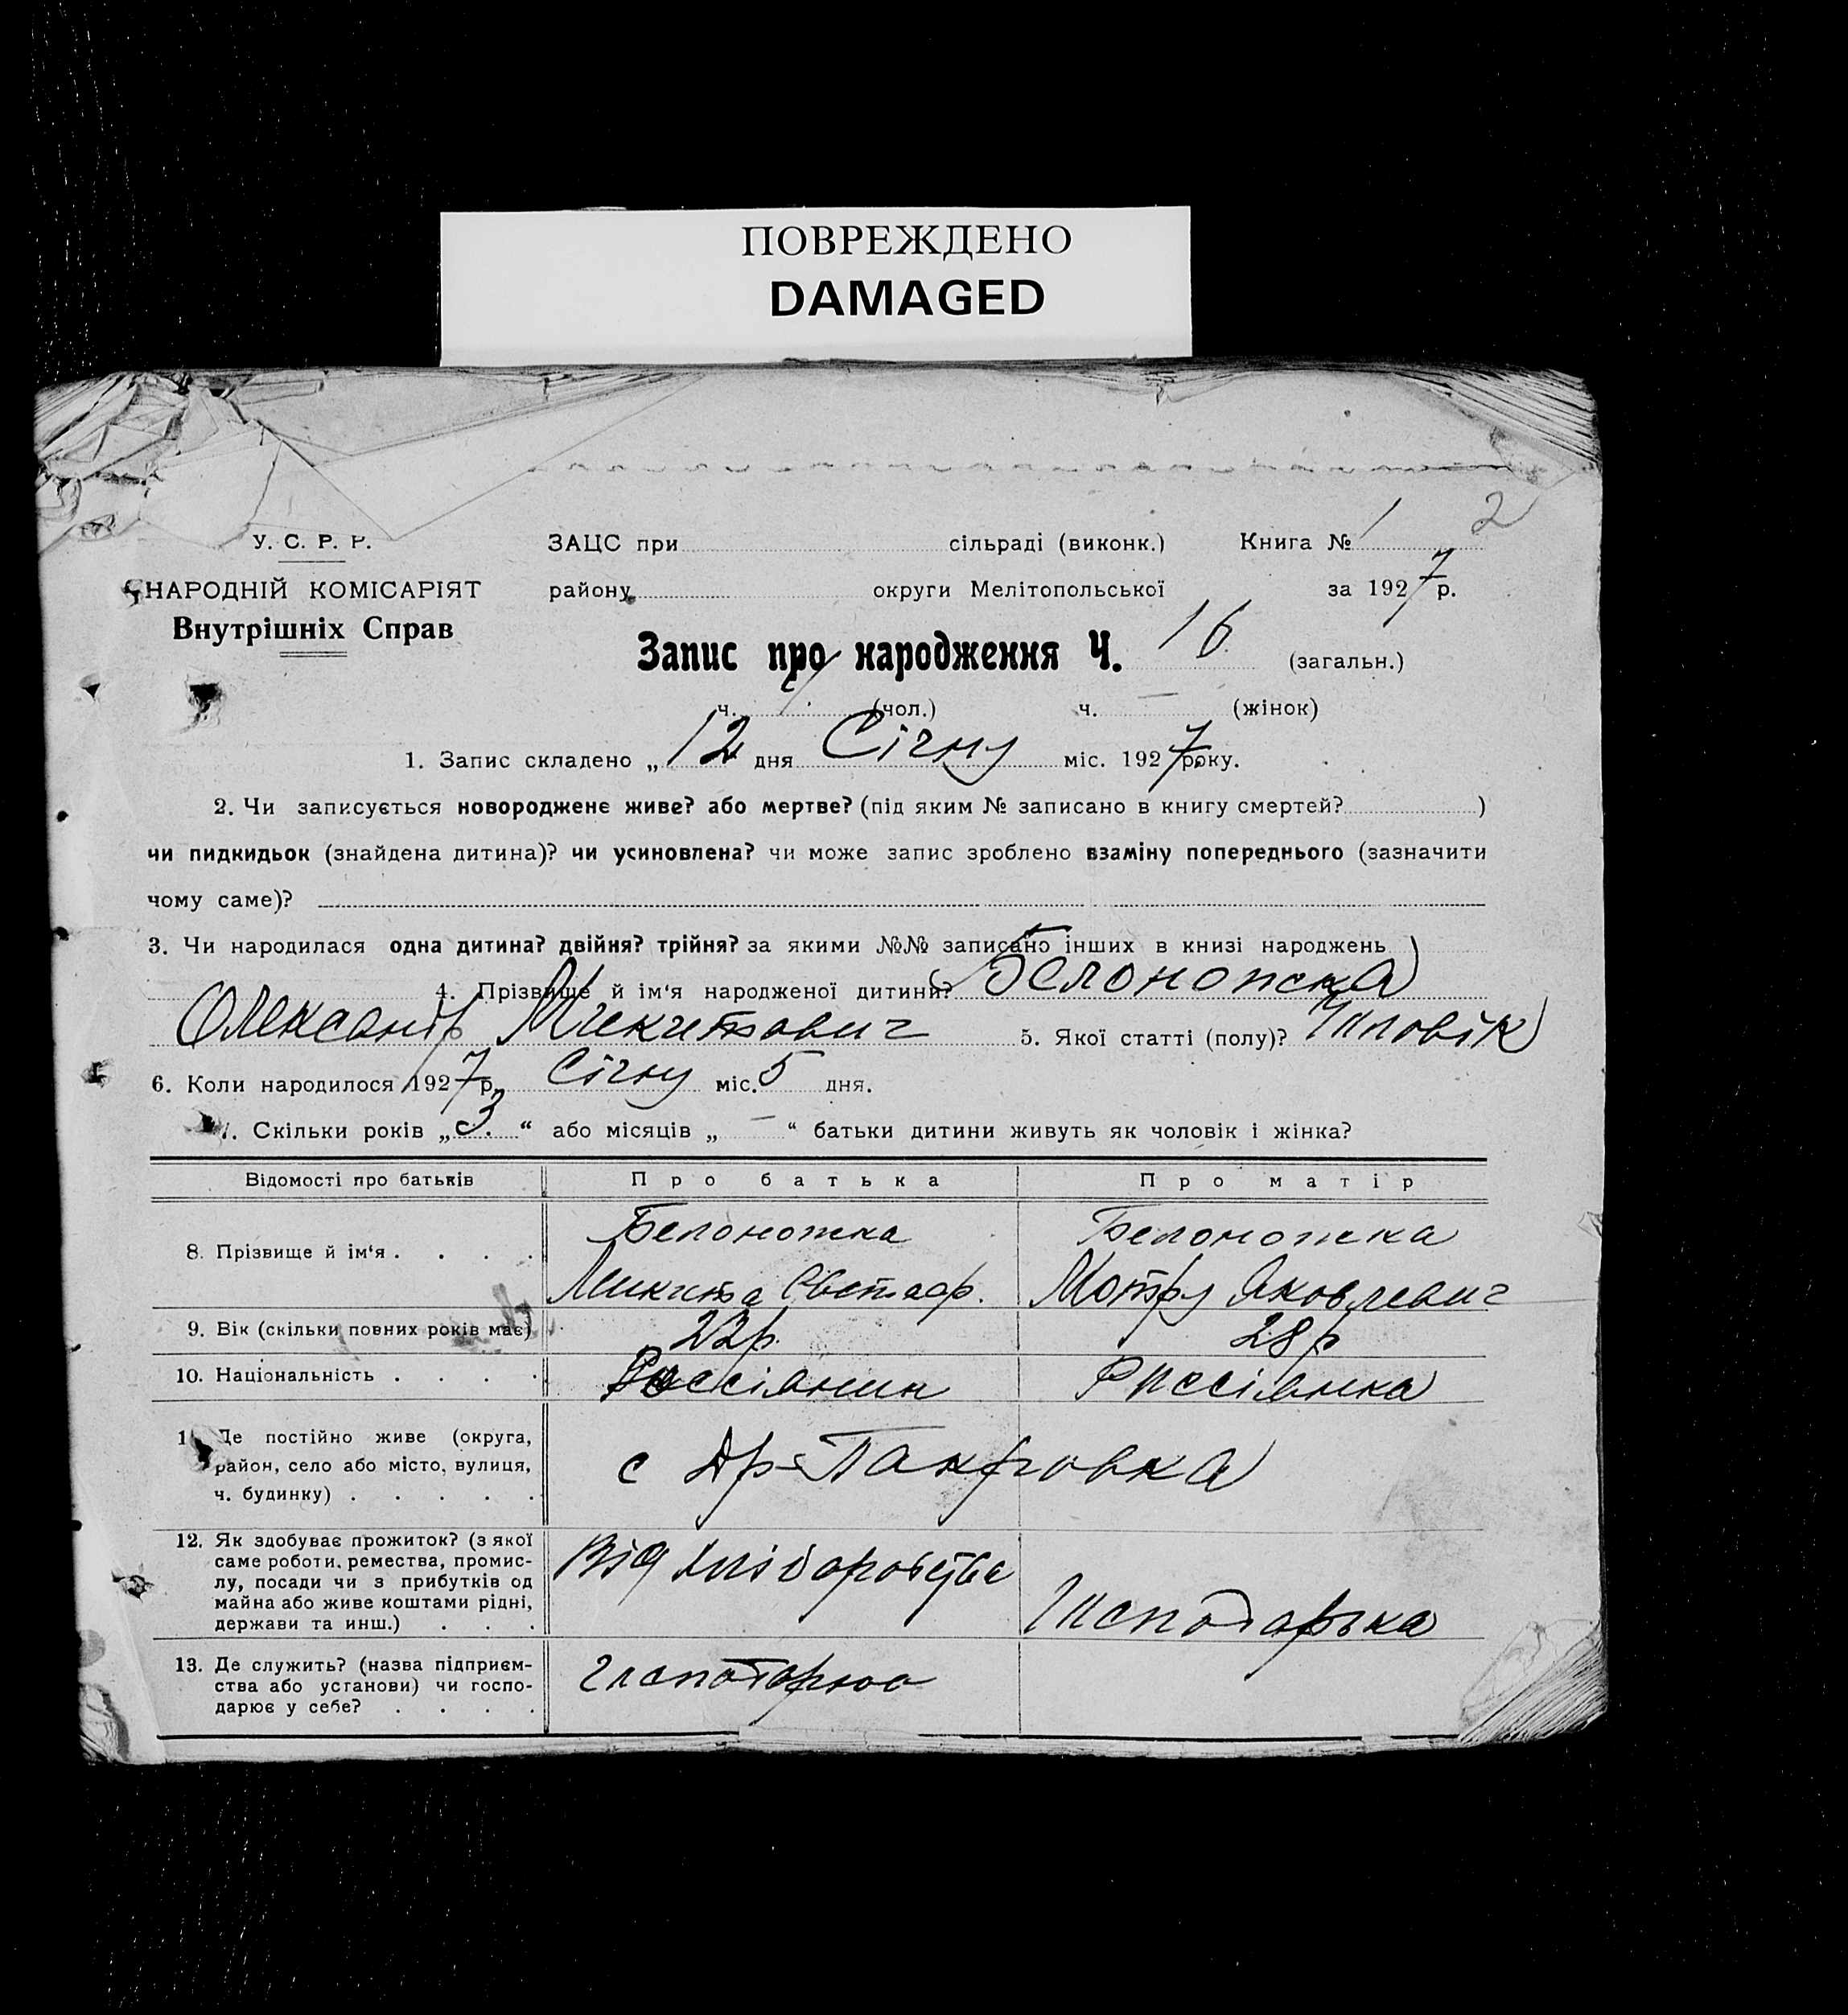 ПОВРЕЖДЕНО
DAMAGED
2
У. С. Р. Р.
НАРОДНІЙ КОМІСАРІЯТ
Внутрішніх Справ
ЗАЦС при сільраді (виконк.) Книга № 1
району округи Мелітопольської за 1927 р.
Запис про народження Ч. 16 (загальн.)
ч. (чол.) ч. — (жінок)
1. Запис складено „ 12 дня Січну міс. 1927 року.
2. Чи записується новороджене живе? або мертве? (під яким № записано в книгу смертей? )
чи пидкидьок (знайдена дитина)? чи усиновлена? чи може запис зроблено взаміну попереднього (зазначити
чому саме)?
3. Чи народилася одна дитина? двійня? трійня? за якими №№ записано інших в книзі народжень
4. Прізвище й ім‘я народженої дитини? Белоножка
Олександр Микитович 5. Якої статті (полу)? Чиловік
6. Коли народилося 1927 р. Січну міс. 5 дня.
7. Скільки років „ 3 “ або місяців „ — “ батьки дитини живуть як чоловік і жінка?
Відомості про батьків Про батька Про матір
8. Прізвище й ім‘я . . . . Белоножка Белоножка
Микита Мотру Яковлевич
9. Вік (скільки повних років має) 22р. 28р
10. Національність . . . . Россіянин Руссіянка
11. Де постійно живе (округа,
район, село або місто, вулиця,
ч. будинку) . . . . .
с Др-Пакровка
12. Як здобуває прожиток? (з якої
саме роботи, ремества, промис-
лу, посади чи з прибутків од
майна або живе коштами рідні,
держави та инш.) . . .
Від
13. Де служить? (назва підприєм-
ства або установи) чи госпо-
дарює у себе? . . . .